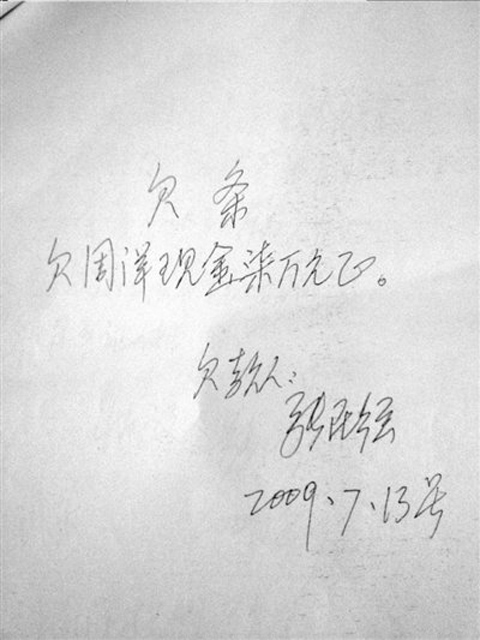 欠条
欠周洋现金柒万元正。
欠款人:
2009.7.13号